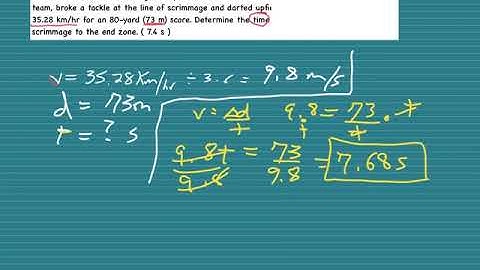 team, broke a tackle at the line of scrimmage and darted upfi
35.28 km/hr for an 80-yard (73 m) score. Determine the time
scrimmage to the end zone. ( 7.4 s )
v = 35.28 Km/hr ÷ 3.6 = 9.8 m/s
d = 73m
t = ? s
v = Δd/t
9.8 = 73/t · t
9.8t/9.8 = 73/9.8 = 7.68 s